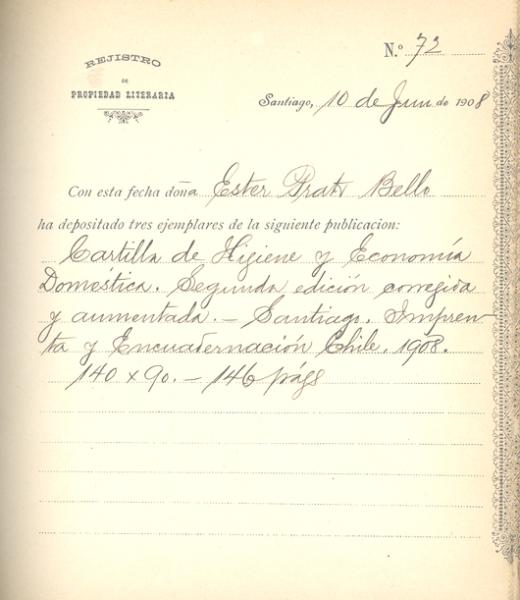 N.º 72
REJISTRO
DE
PROPIEDAD LITERARIA
Santiago, 10 de Jun de 1908
Con esta fecha doña Ester Prats Bello
ha depositado tres ejemplares de la siguiente publicacion:
Cartilla de Higiene y Economía
Doméstica. Segunda edición corregida
y aumentada. – Santiago. Impren-
ta y Encuadernación Chile. 1908.
140 x 90. – 146 págs